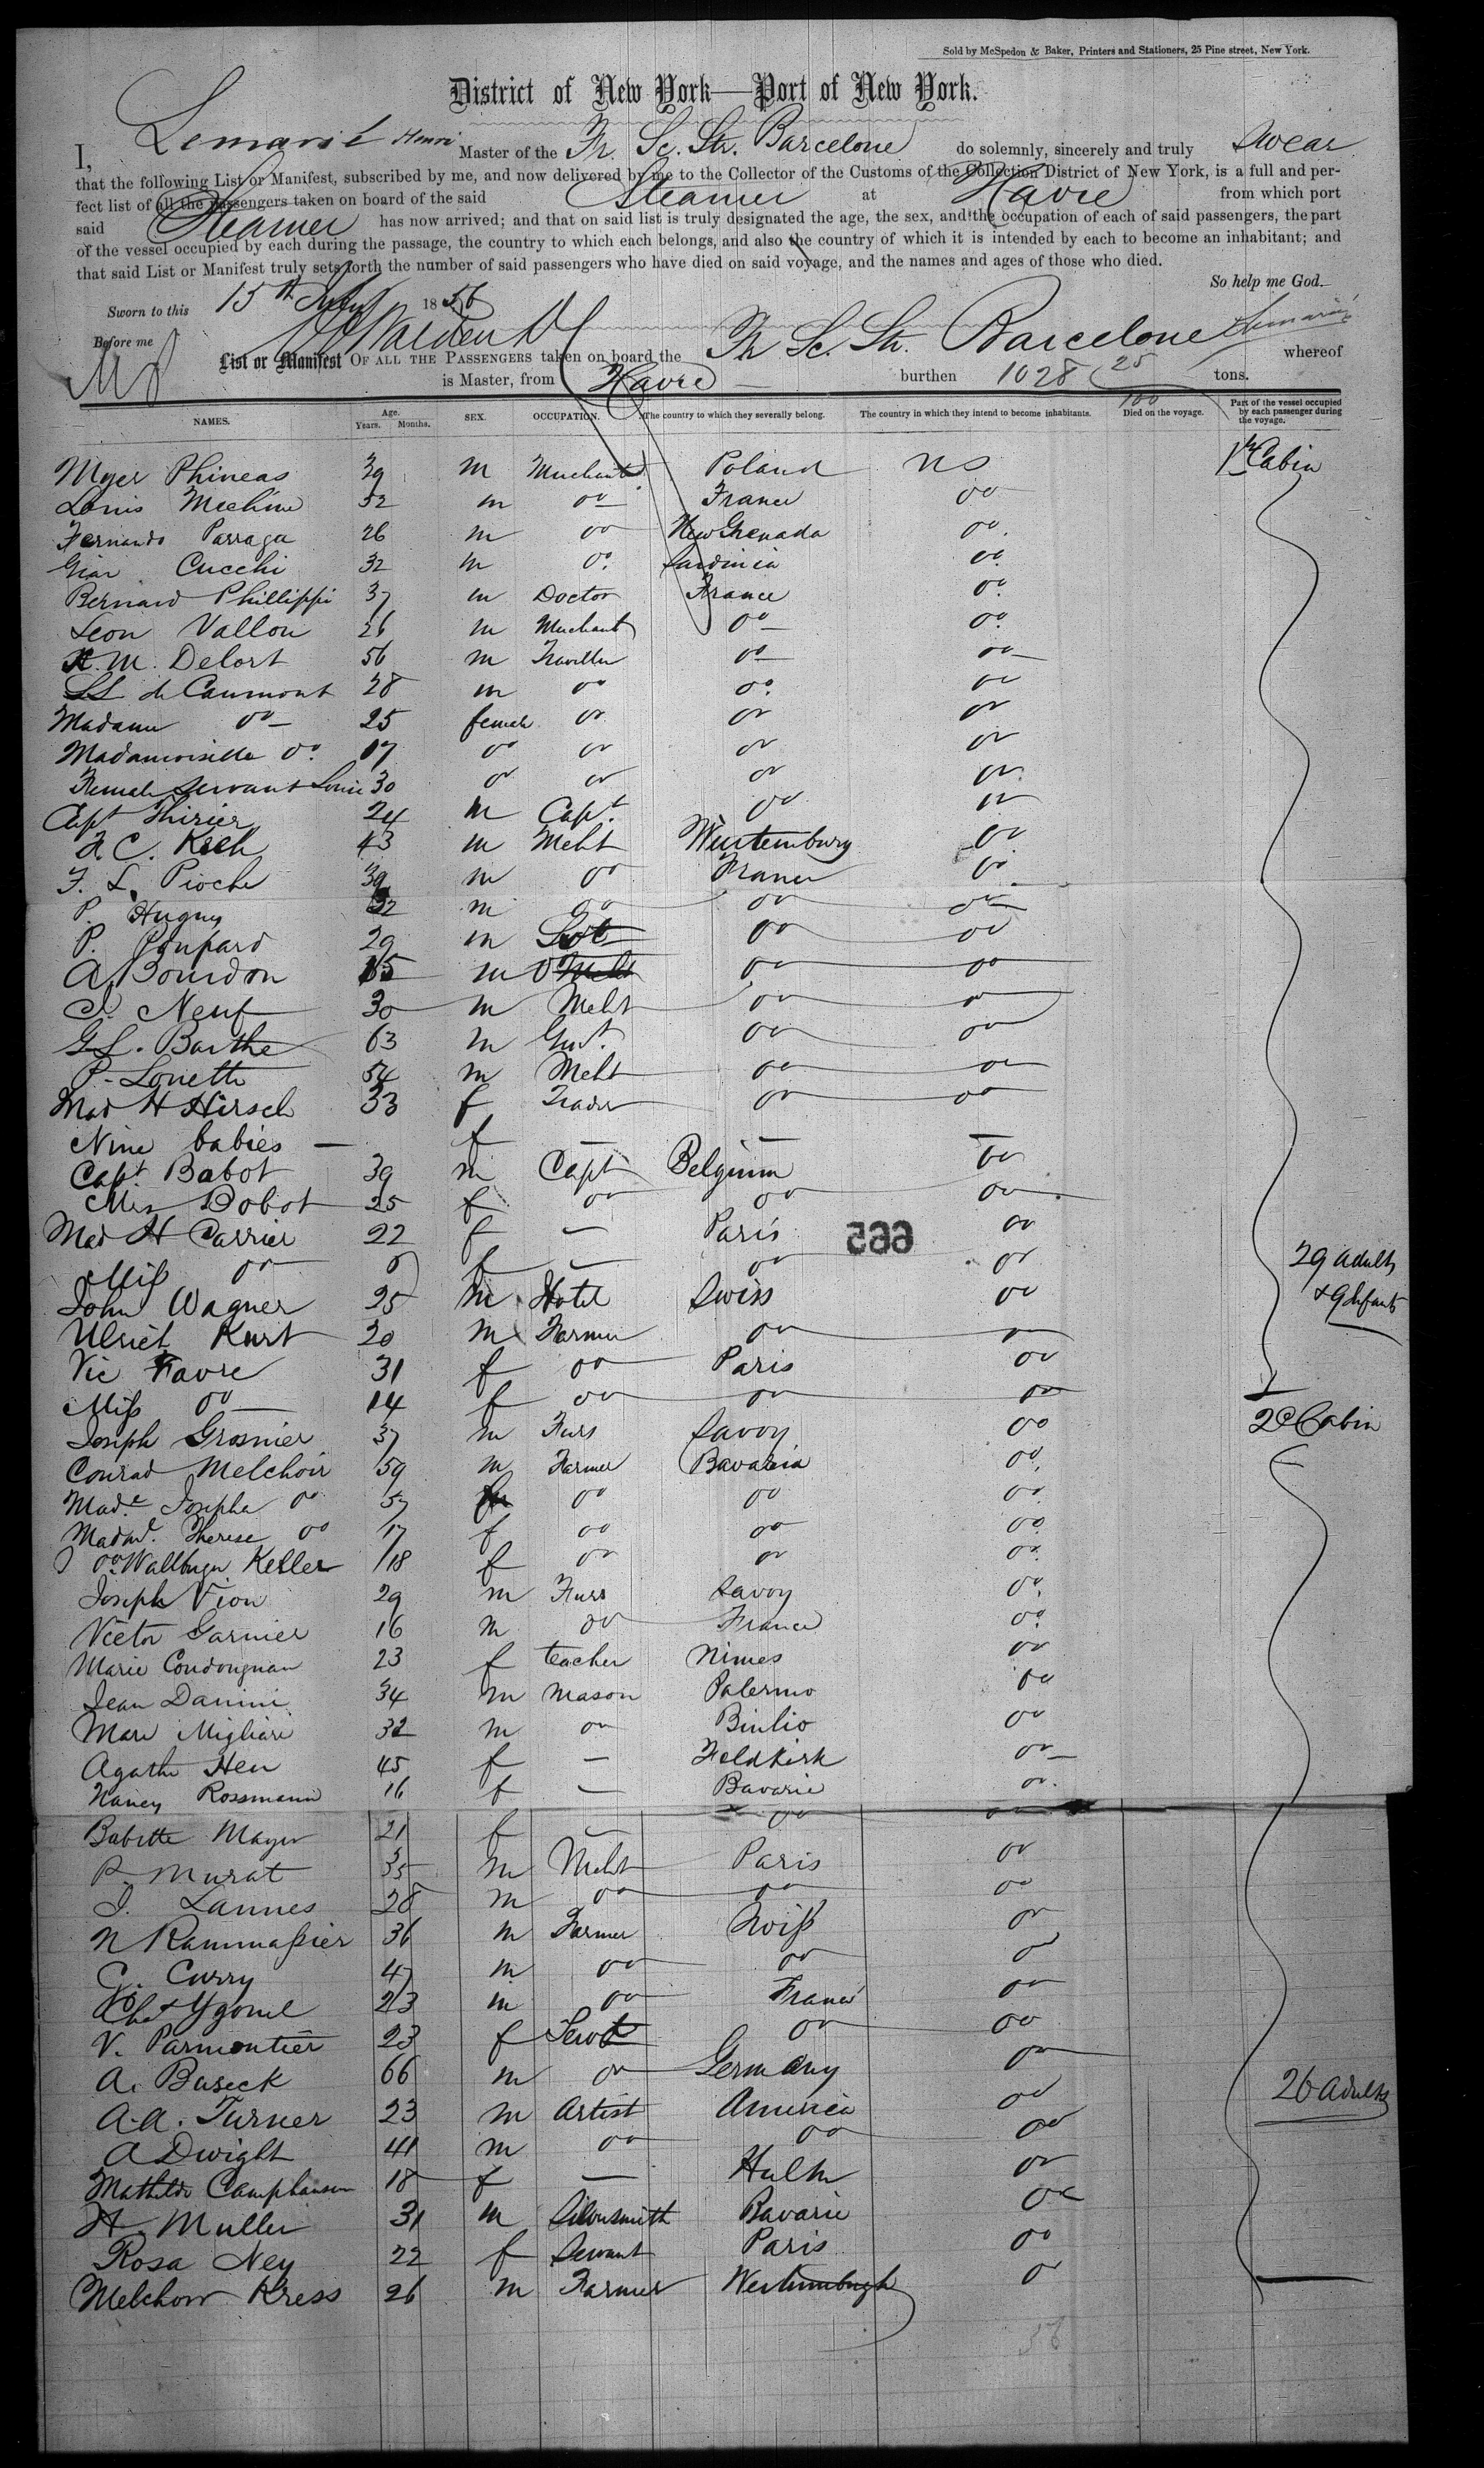 Sold by McSpedon & Baker, Printers and Stationers, 25 Pine street, New York.
District of New York—Port of New York.
I, Lemarié Henri Master of the Fr. Sc. Str. Barcelone do solemnly, sincerely and truly swear
that the following List or Manifest, subscribed by me, and now delivered by me to the Collector of the Customs of the Collection District of New York, is a full and per-
fect list of all the passengers taken on board of the said Steamer at Havre from which port
said Steamer has now arrived; and that on said list is truly designated the age, the sex, and the occupation of each of said passengers, the part
of the vessel occupied by each during the passage, the country to which each belongs, and also the country of which it is intended by each to become an inhabitant; and
that said List or Manifest truly sets forth the number of said passengers who have died on said voyage, and the names and ages of those who died.
So help me God.
Sworn to this 15th July 1856
Lemarié
Before me
List or Manifest OF ALL THE PASSENGERS taken on board the Fr Sc. Str. Barcelone whereof
is Master, from Havre burthen 1028 25/100 tons.
NAMES. Age. Years. Months. SEX. OCCUPATION. The country to which they severally belong. The country in which they intend to become inhabitants. Died on the voyage. Part of the vessel occupied by each passenger during the voyage.
Myer Phineas 39 m Merchant Poland US 1st Cabin
Louis 52 m do France do
Fernando Parraga 26 m do New Grenada do
Gian Cucchi 32 m do Sardinia do
Bernard Phillippi 37 m Doctor France do
Leon Vallon 26 m Merchant do do
M. Delort 56 m Traveller do do
de Caumont 28 m do do do
Madame do 25 female do do do
Madamoiselle do 17 do do do do
Female Servant Louise 30 do do do do
Capt Thirier 24 m Capt. do do
F. C. Koch 43 m Mcht Wurtemburg do
F. L. Pioche 39 m do France do
P. Hugny 32 m do do do
P. Poupard 29 m Servt do do
A. Bourdon 15 m do do
J. Neuf 30 m Mcht do do
G L. Barthe 63 m Gent. do do
P. Louette 54 m Mcht do do
Mad H Hirsch 33 f Trader do do
Nine babies — f — — —
Capt Babot 39 m Capt Belgium do
Mrs Dobot 25 f do do do
Mad H Carrier 22 f — Paris do
999
Miss do 6 f — do do
29 adults
& 9 Infants
John Wagner 25 m Hotel Swiss do
Ulrich Kurt 20 m Farmer do do
Vic Favre 31 f do Paris do
Miss do 14 f do do do
2d Cabin
Joseph Grosnier 37 m Furs Savoy do
Conrad Melchoir 59 m Farmer Bavaria do
Made Josepha do 57 f do do do
Madme. Therese do 17 f do do do
do Wallburger Keller 18 f do do do
Joseph Vion 29 m Furs Savoy do
Victor Garnier 16 m do France do
Marie Condougnan 23 f teacher Nimes do
Jean Danini 34 m Mason Palermo do
Marc Migliari 32 m do do
Agathe Heu 45 f — Feldkirk do
Nancy Rossmann 16 f — Bavarie do
Babette Mayer 21 f — do do
P. Murat 35 m Mcht Paris do
J. Lannes 28 m do do do
N Rammassier 36 m Farmer Swiss do
C. Curry 47 m do do do
Ygonel 23 m do France do
V. Parmontier 23 f Servt do do
A. Buseck 66 m do Germany do
26 adults
A. A. Turner 23 m Artist America do
A Dwight 41 m do do do
Mathilde Camphausen 18 f — do
H. Muller 31 m Silversmith Bavarie do
Rosa Ney 22 f Servant Paris do
Melchoir Kress 26 m Farmer do